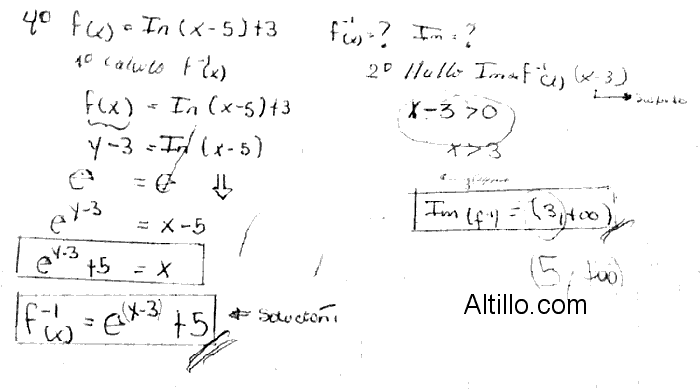 4º f(x) = In (x-5)+3
1º calculo f⁻¹(x)
f(x) = In (x-5)+3
y-3 = In (x-5)
e = e ⇓
e^(y-3) = x-5
e^(y-3) +5 = x
f⁻¹(x) = e^(x-3) +5 ← Solución
f⁻¹(x)=? Im=?
2º Hallo Im f⁻¹(x) (x-3)
x-3 >0
x>3
Im (f⁻¹) = (3,+∞)
(5, +∞)
Altillo.com